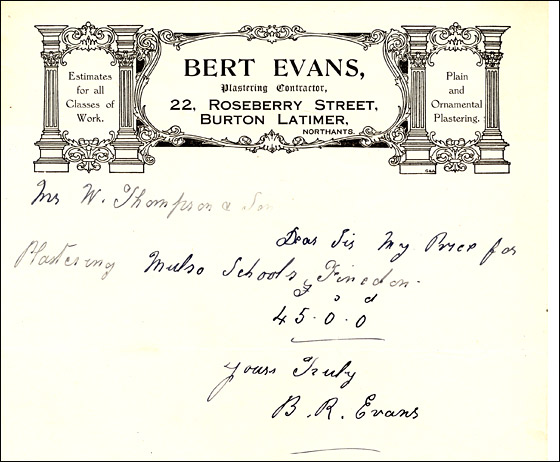 Estimates
for all
Classes of
Work.
BERT EVANS,
Plastering Contractor,
22, ROSEBERRY STREET,
BURTON LATIMER,
NORTHANTS.
Plain
and
Ornamental
Plastering.
W. Thompson & Son
Dear Sir My Price for
Plastering Mulso Schools, Finedon.
£ s d
45.0.0
Yours Truly
B. R. Evans